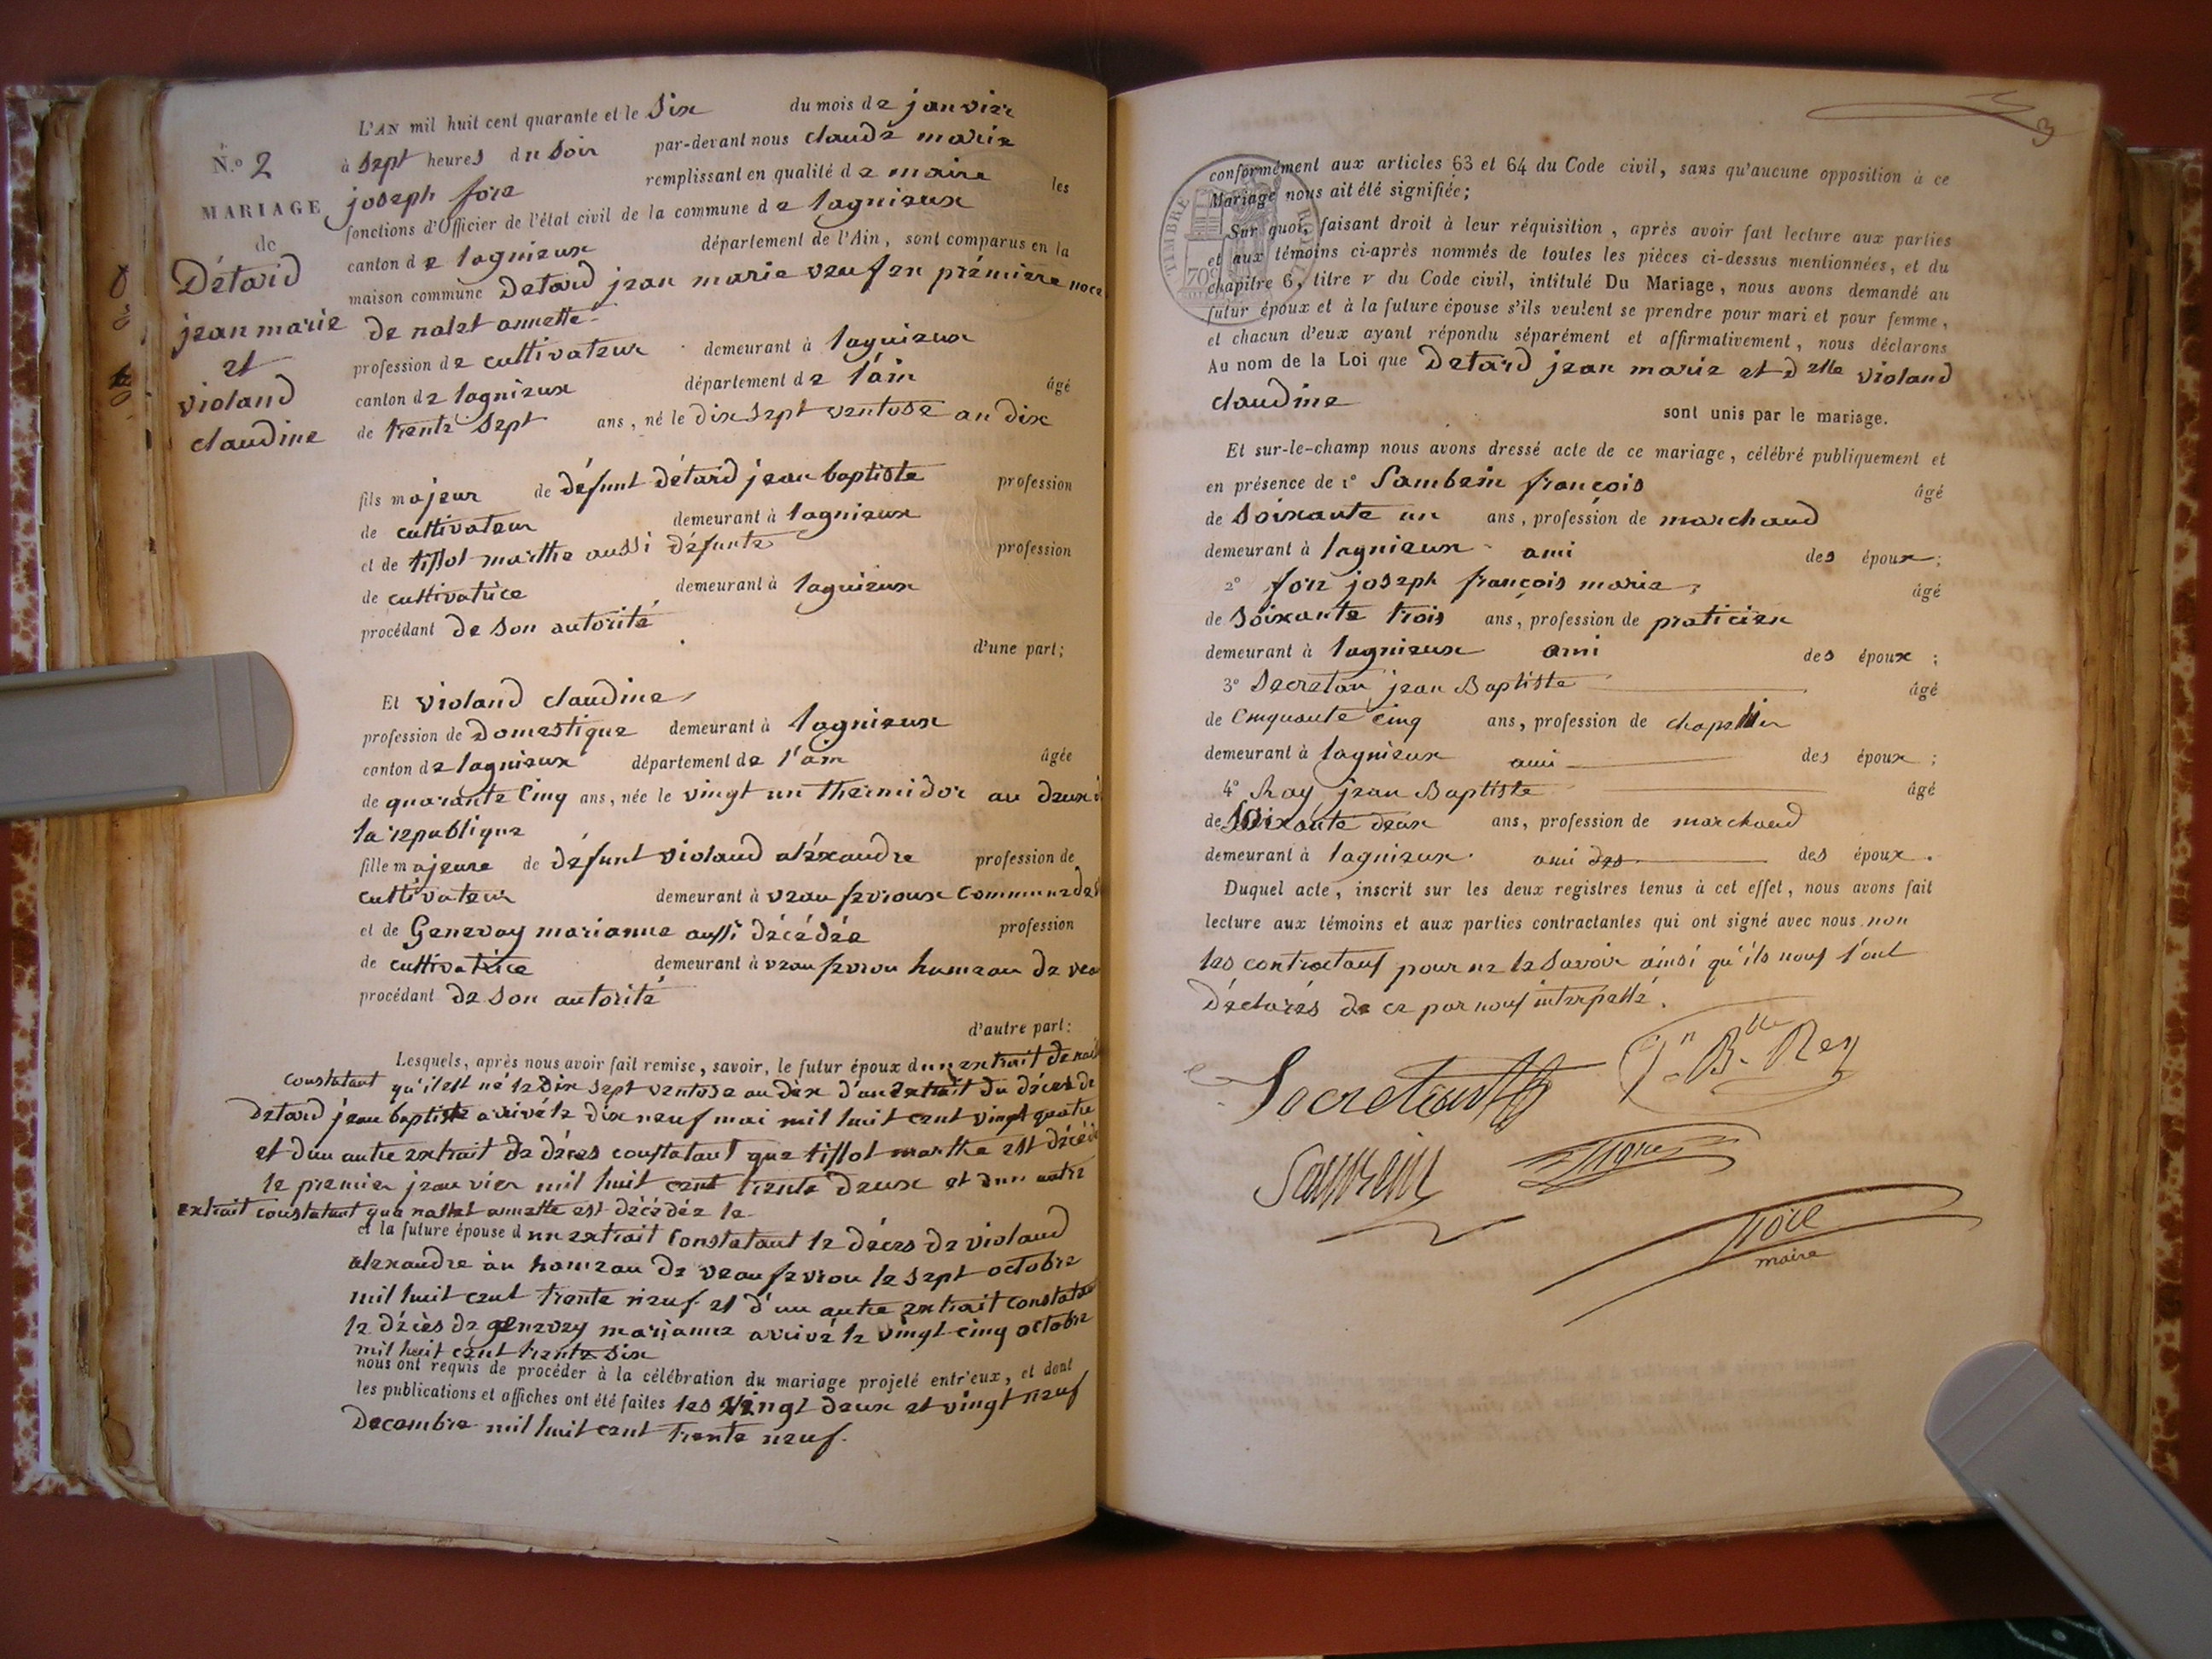 N.o 2
MARIAGE
de
Détard
jean marie
et
violand
claudine
L'AN mil huit cent quarante et le Six du mois de janvier
à sept heures du soir par-devant nous claude marie
joseph fore remplissant en qualité de maire les
fonctions d'Officier de l'état civil de la commune de lagnieux
canton de lagnieux département de l'Ain, sont comparus en la
maison commune Detard jean marie veuf en première noce
de nalet annette
profession de cultivateur demeurant à lagnieux
canton de lagnieux département de l'ain âgé
de trente sept ans, né le dix sept ventose an dix
fils majeur de défunt détard jean baptiste profession
de cultivateur demeurant à lagnieux
et de tissot marthe aussi défunte profession
de cultivatrice demeurant à lagnieux
procédant de son autorité
d'une part;
Et violand claudine
profession de domestique demeurant à lagnieux
canton de lagnieux département de l'ain âgée
de quarante cinq ans, née le vingt un thermidor an deux
la république
fille majeure de défunt violand aléxandre profession de
cultivateur demeurant à veau fevroux commune de
et de Genevay marianne aussi décédée profession
de cultivatrice demeurant à veau fevrou hameau de
procédant de son autorité
d'autre part:
Lesquels, après nous avoir fait remise, savoir, le futur époux d'un extrait de
constatant qu'il est né le dix sept ventose an dix d'un extrait du déces de
detard jean baptiste arrivé le dix neuf mai mil huit cent vingt quatre
et d'un autre extrait de déces constatant que tissot marthe est décédé
le premier jeanvier mil huit cent trente deux et d'un autre
extrait constatant que nallet annette est décédée le
et la future épouse d'un extrait constatant le déces de violand
alexandre au hameau de veau fevrou le sept octobre
mil huit cent trente neuf et d'un autre extrait constatant
le décès de genevey marianne arrivé le vingt cinq octobre
mil huit cent trente six
nous ont requis de procéder à la célébration du mariage projeté entr'eux, et dont
les publications et affiches ont été faites les vingt deux et vingt neuf
decembre mil huit cent trente neuf.
3
TIMBRE
conformément aux articles 63 et 64 du Code civil, sans qu'aucune opposition à ce
Mariage nous ait été signifiée;
Sur quoi, faisant droit à leur réquisition, après avoir fait lecture aux parties
et aux témoins ci-après nommés de toutes les pièces ci-dessus mentionnées, et du
chapitre 6, titre V du Code civil, intitulé Du Mariage, nous avons demandé au
futur époux et à la future épouse s'ils veulent se prendre pour mari et pour femme,
et chacun d'eux ayant répondu séparément et affirmativement, nous déclarons
Au nom de la Loi que Detard jean marie et delle violand
claudine
sont unis par le mariage.
Et sur-le-champ nous avons dressé acte de ce mariage, célébré publiquement et
en présence de 1o Sambein françois âgé
de soixante un ans, profession de marchand
demeurant à lagnieux ami des époux;
2o fore joseph françois marie, âgé
de soixante trois ans, profession de praticien
demeurant à lagnieux ami des époux;
3o Secretan jean Baptiste âgé
de Cinquante cinq ans, profession de chapellier
demeurant à lagnieux ami des époux;
4o Ray jean Baptiste âgé
de Soixante deux ans, profession de marchand
demeurant à lagnieux ami des des époux.
Duquel acte, inscrit sur les deux registres tenus à cet effet, nous avons fait
lecture aux témoins et aux parties contractantes qui ont signé avec nous non
les contractans pour ne le savoir ainsi qu'ils nous l'ont
déclarés de ce par nous interpellé.
Jn Bte Rey
maire